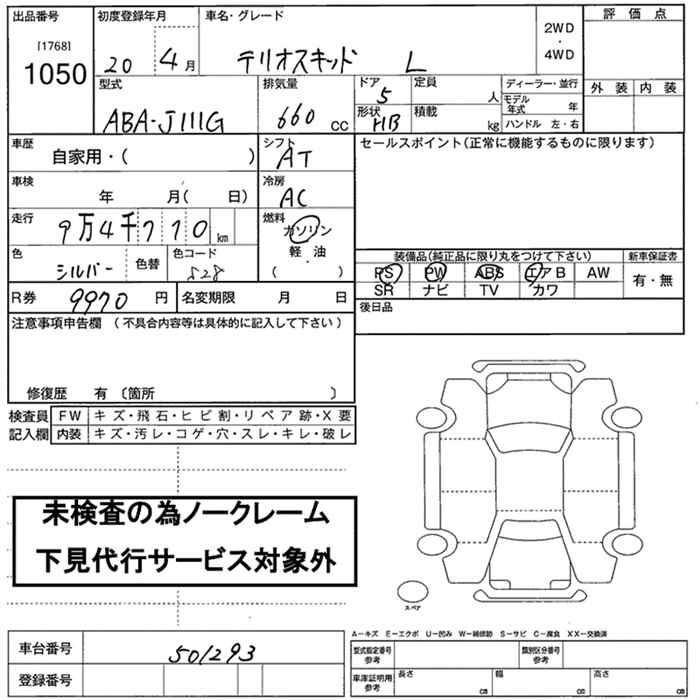 出品番号
[1768]
1050
初度登録年月
20 4月
車名・グレード
テリオスキッド L
2WD
・
4WD
評価点
外装 内装
型式
ABA-J111G
排気量
660 cc
ドア
5
形状
HB
定員
人
積載
kg
ディーラー・並行
モデル年式 年
ハンドル 左・右
車歴
自家用・( )
シフト
AT
セールスポイント(正常に機能するものに限ります)
車検
年 月( 日)
冷房
AC
走行
9万4千770 km
燃料
ガソリン
軽・油
( ・ )
色
シルバー
色替
色コード
S28
装備品(純正品に限り丸をつけて下さい)
新車保証書
PS PW ABS エアB AW
SR ナビ TV カワ
有・無
R券 9970 円
名変期限 月 日
後日品
注意事項申告欄 (不具合内容等は具体的に記入して下さい)
修復歴 有 〔箇所 〕
検査員記入欄
FW キズ・飛石・ヒビ割・リペア跡・X要
内装 キズ・汚レ・コゲ・穴・スレ・キレ・破レ
未検査の為ノークレーム
下見代行サービス対象外
スペア
A−キズ E−エクボ U−凹み W−補修跡 S−サビ C−腐食 XX−交換済
車台番号 501293
登録番号
型式指定番号参考
類別区分番号参考
車庫証明用参考
長さ cm
幅 cm
高さ cm